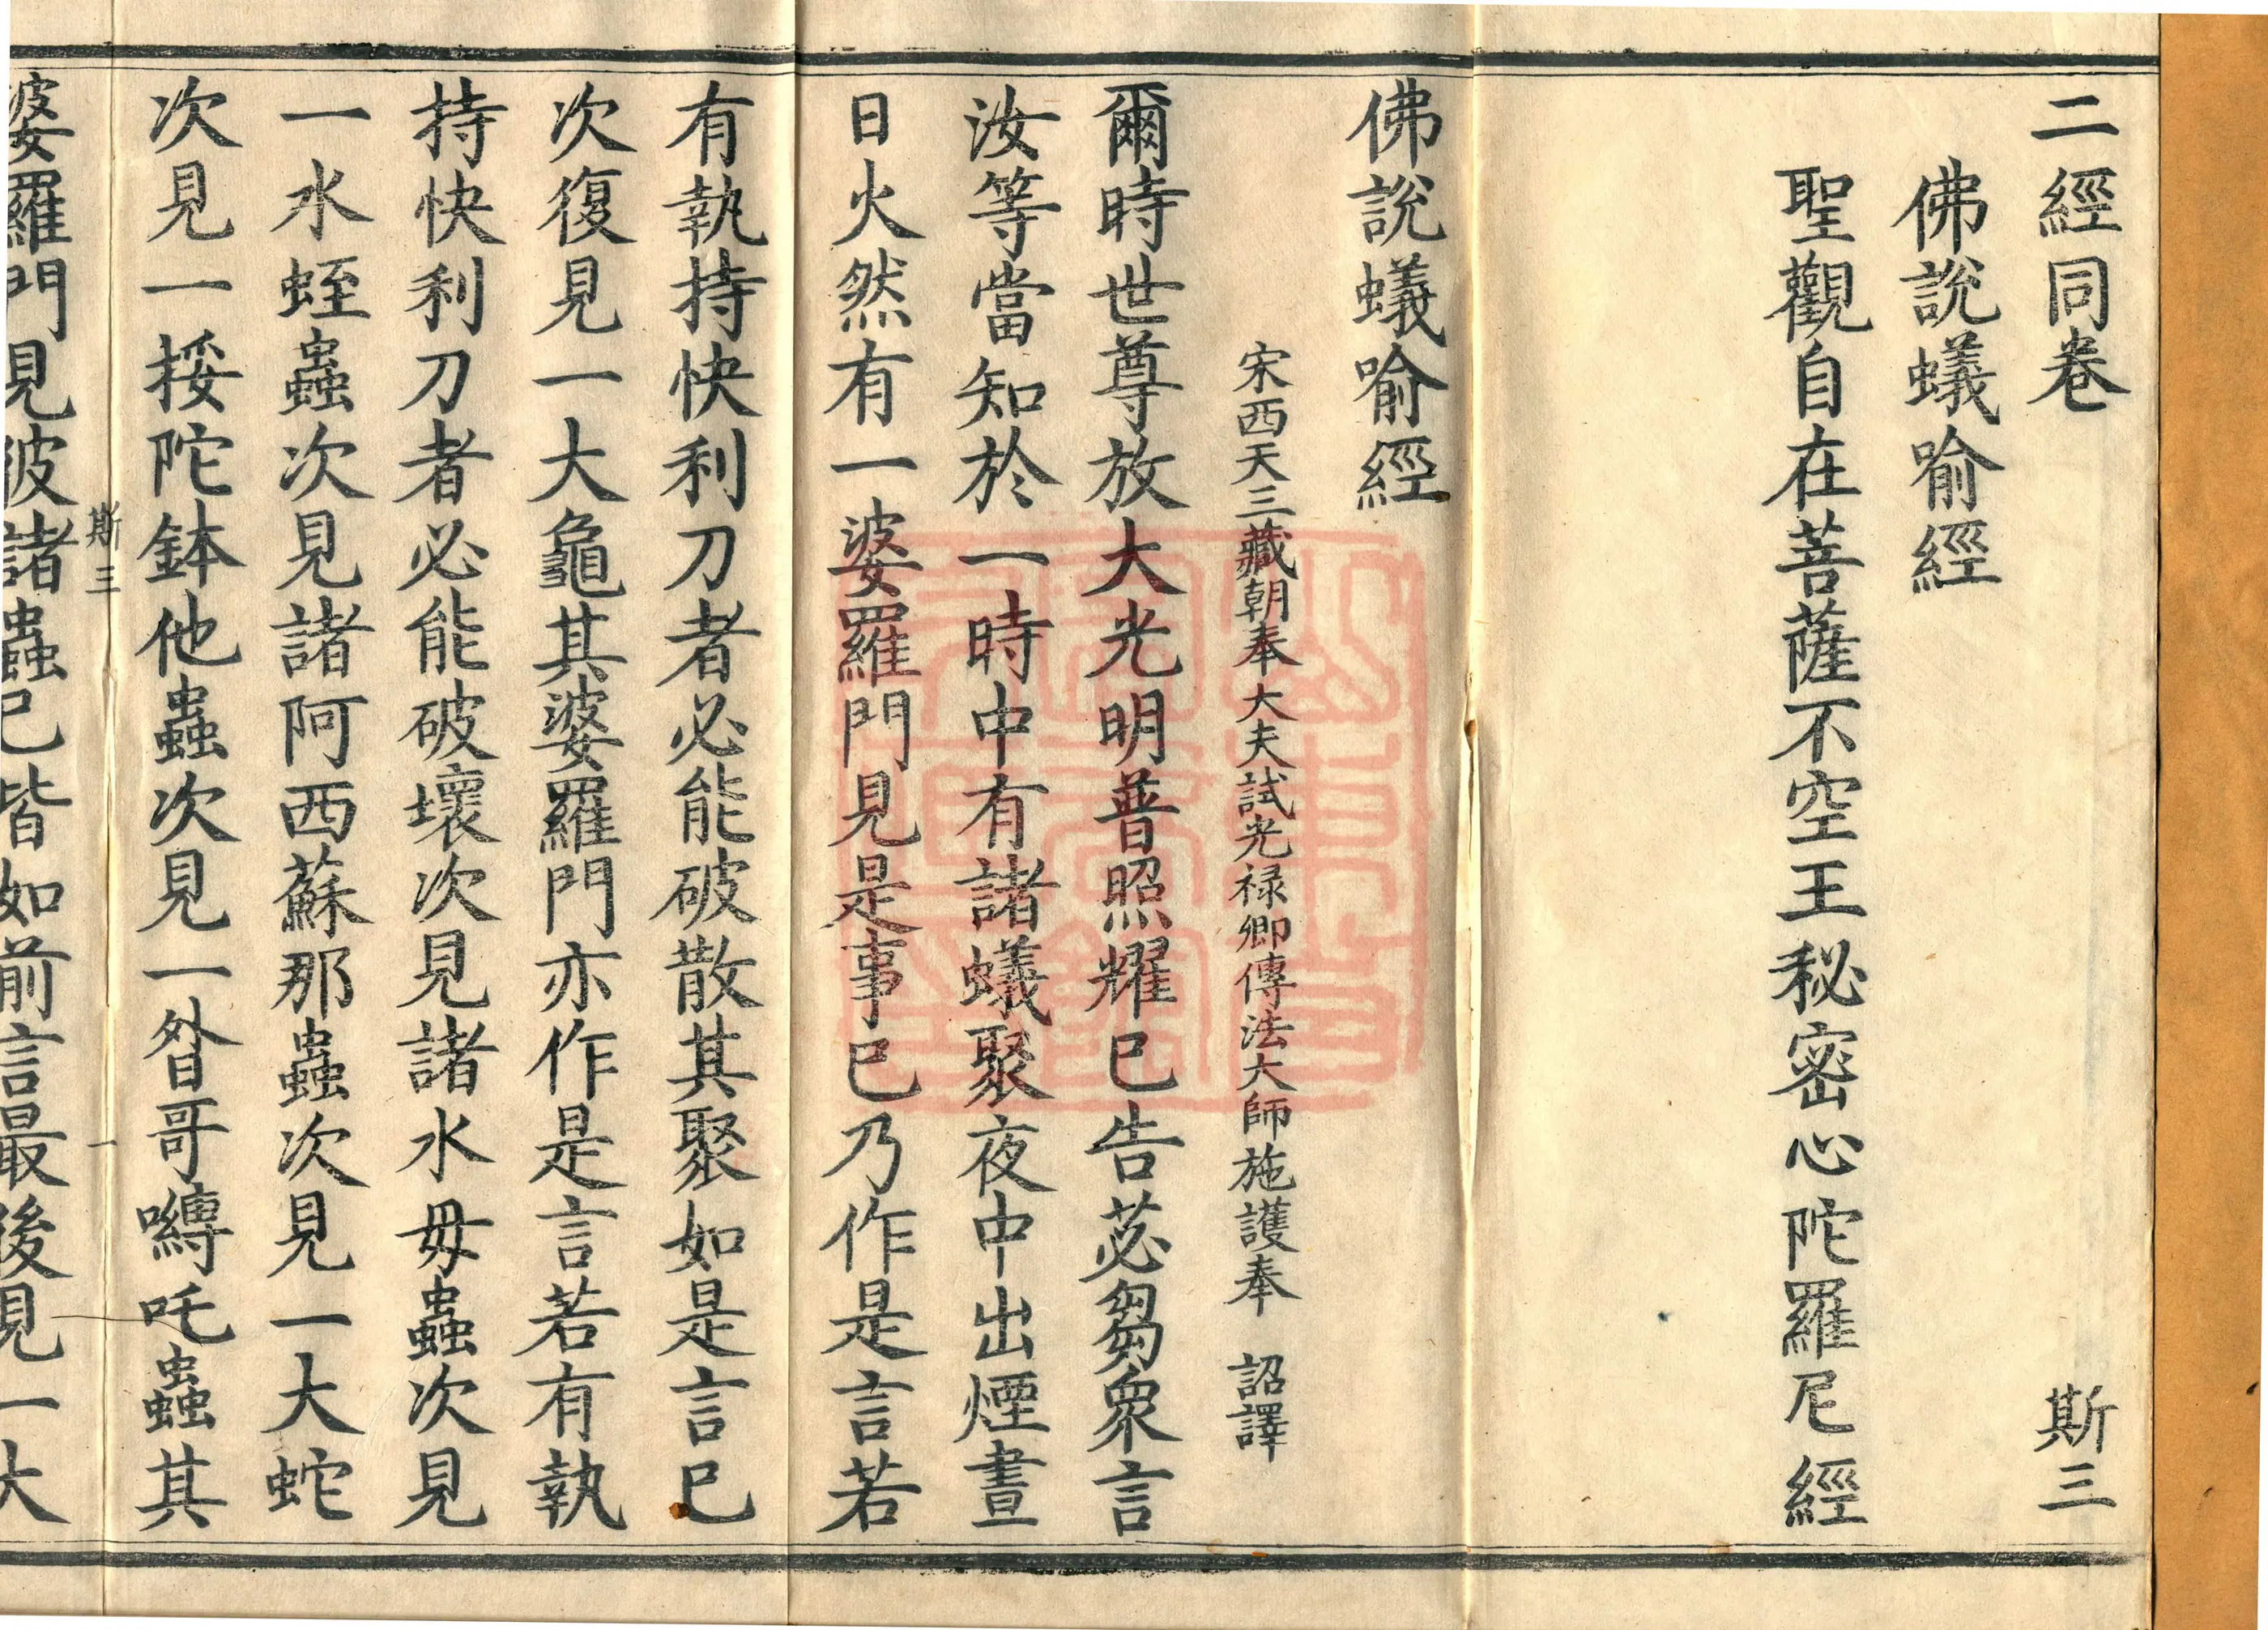 二經同卷 斯三
佛說蟻喻經
聖觀自在菩薩不空王秘密心陀羅尼經
佛說蟻喻經
宋西天三藏朝奉大夫試光禄卿傳法大師施護奉 詔譯
爾時世尊放大光明普照耀已告苾芻衆言
汝等當知於一時中有諸蟻聚夜中出煙晝
日火然有一婆羅門見是事已乃作是言若
有執持快利刀者必能破散其聚如是言已
次復見一大龜其婆羅門亦作是言若有執
持快利刀者必能破壞次見諸水母蟲次見
一水蛭蟲次見諸阿西蘇那蟲次見一大蛇
次見一挼陀鉢他蟲次見一昝哥嚩吒蟲其
斯三 一
婆羅門見彼諸蟲已皆如前言最後見一大